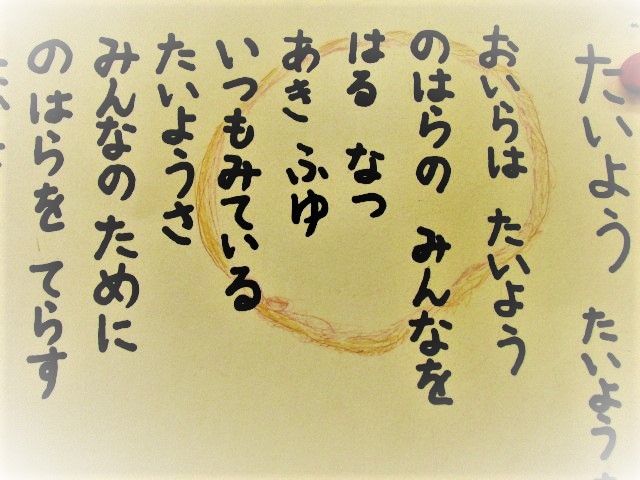 たいよう たいよう
おいらは たいよう
のはらの みんなを
はる なつ
あき ふゆ
いつもみている
たいようさ
みんなの ために
のはらを てらす